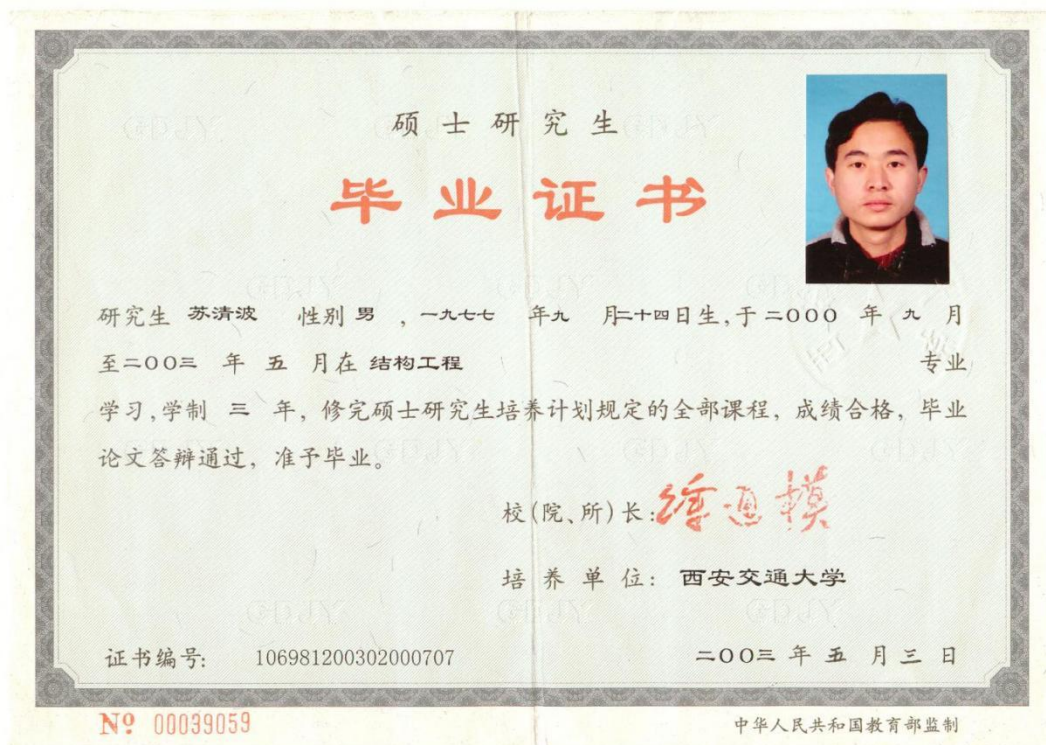 硕士研究生
毕业证书
研究生 苏清波 性别 男 , 一九七七 年九 月二十四日生,于 二〇〇〇 年 九 月
至二〇〇三 年 五 月在 结构工程 专业
学习,学制 三 年, 修完硕士研究生培养计划规定的全部课程, 成绩合格, 毕业
论文答辩通过, 准予毕业。
校(院、所)长: 徐通模
培养单位: 西安交通大学
证书编号: 106981200302000707 二〇〇三 年 五 月 三 日
№ 00039059 中华人民共和国教育部监制